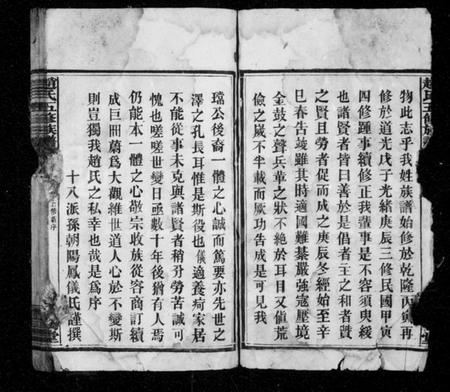 趙氏五修族
物此志乎我姓族譜始修於乾隆丙寅再
修於道光戊子光緒庚辰三修民國甲寅
四修踵事續修正我輩事是不容須臾緩
也諸賢者皆曰善於是倡者主之和者贊
之賢且勞者促而成之庚辰冬經始至辛
巳春告竣雖其時適國難棊嚴強寇壓境
金鼓之聲兵革之狀不絕於耳目又值荒
儉之嵗不半載而厥功告成是可見我
瑺公後裔一體之心誠而篤要亦先世之
澤之孔長耳惟是斯役也儀適養疴家居
不能從事未克與諸賢者稍分勞苦誠可
愧也嗟嗟世變日亟數十年後猶有人焉
仍能本一體之心敬宗收族從容商訂續
成巨冊蔚爲大觀維世道人心於不變斯
則豈獨我趙氏之私幸也哉是爲序
十八派孫朝陽鳳儀氏謹撰
趙氏五修族譜